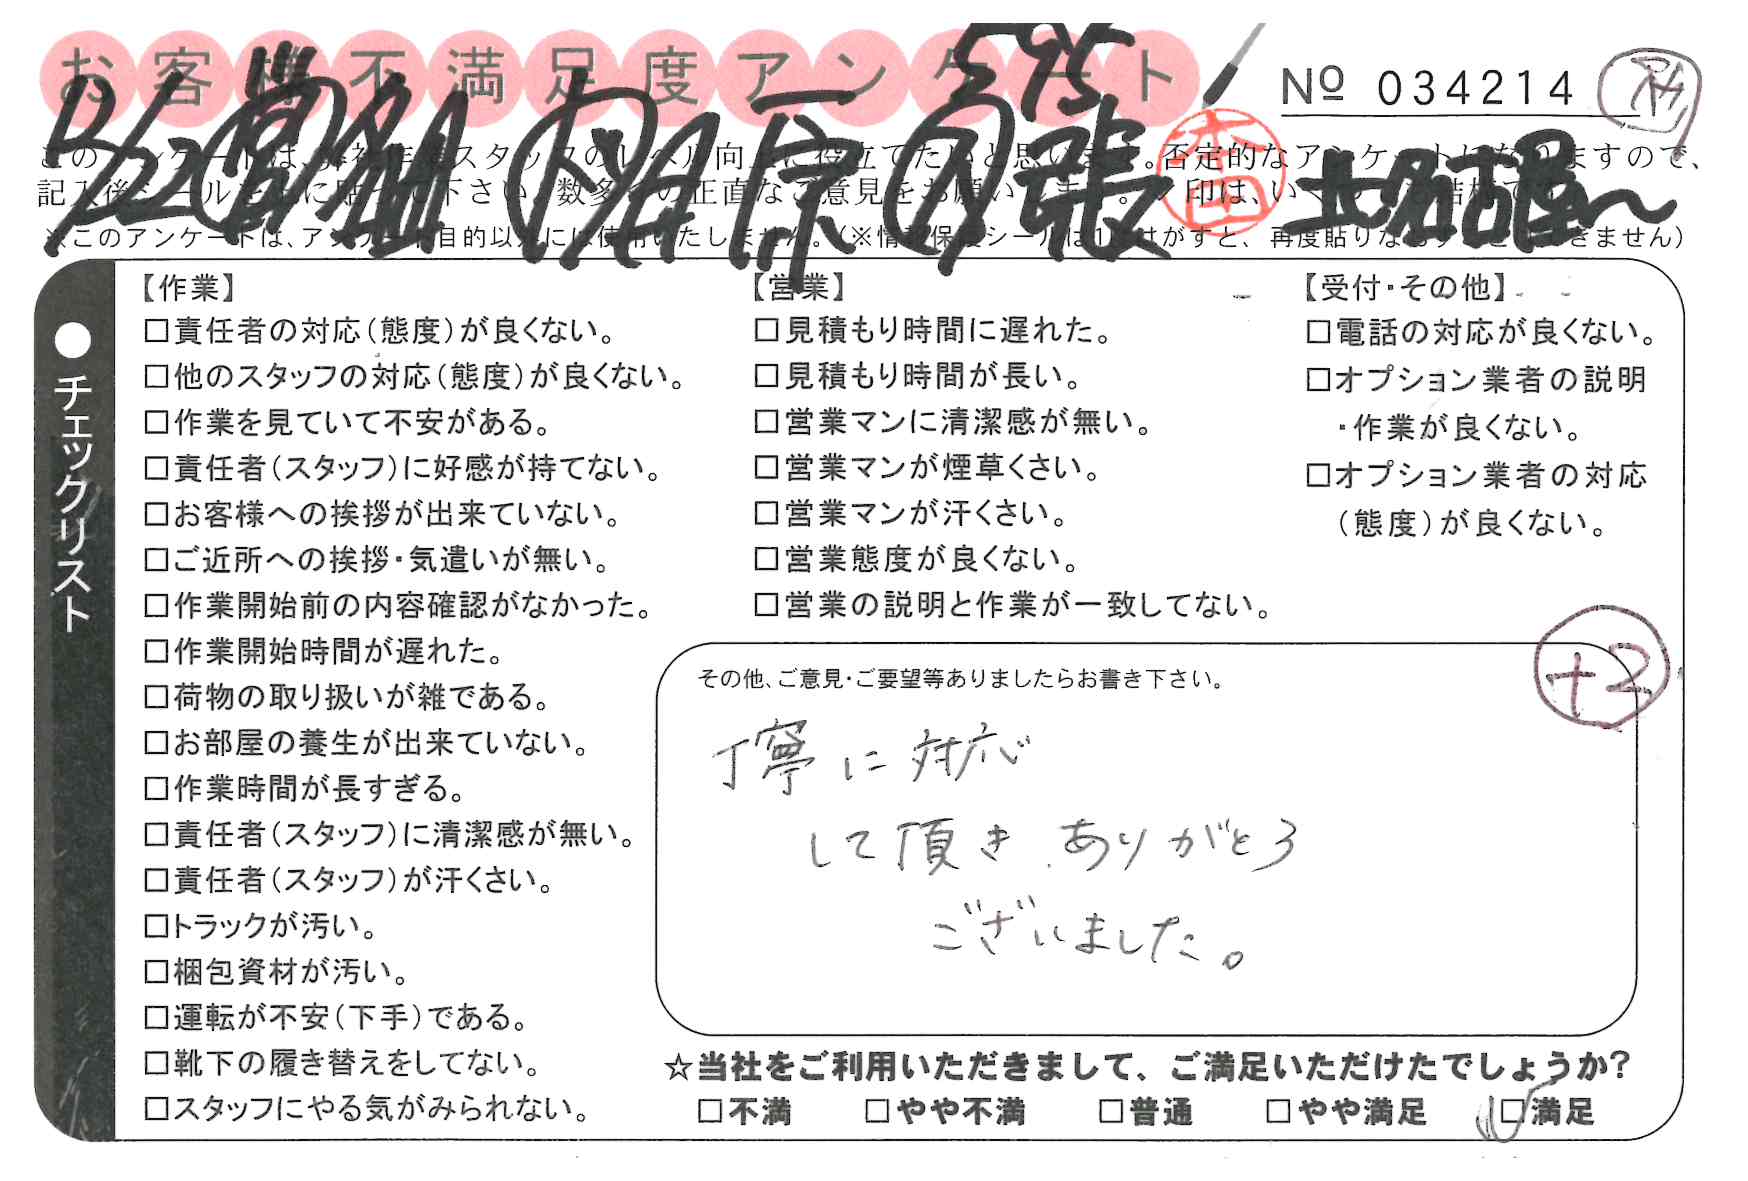 お客様不満足度アンケート
595
№ 034214
記入後シールを上に貼って下さい。数多くの正直なご意見をお願いします。
●チェックリスト
【作業】
□責任者の対応(態度)が良くない。
□他のスタッフの対応(態度)が良くない。
□作業を見ていて不安がある。
□責任者(スタッフ)に好感が持てない。
□お客様への挨拶が出来ていない。
□ご近所への挨拶・気遣いが無い。
□作業開始前の内容確認がなかった。
□作業開始時間が遅れた。
□荷物の取り扱いが雑である。
□お部屋の養生が出来ていない。
□作業時間が長すぎる。
□責任者(スタッフ)に清潔感が無い。
□責任者(スタッフ)が汗くさい。
□トラックが汚い。
□梱包資材が汚い。
□運転が不安(下手)である。
□靴下の履き替えをしてない。
□スタッフにやる気がみられない。
【営業】
□見積もり時間に遅れた。
□見積もり時間が長い。
□営業マンに清潔感が無い。
□営業マンが煙草くさい。
□営業マンが汗くさい。
□営業態度が良くない。
□営業の説明と作業が一致してない。
【受付・その他】
□電話の対応が良くない。
□オプション業者の説明
・作業が良くない。
□オプション業者の対応
(態度)が良くない。
+2
その他、ご意見・ご要望等ありましたらお書き下さい。
丁寧に対応
して頂き、ありがとう
ございました。
☆当社をご利用いただきまして、ご満足いただけたでしょうか?
□不満 □やや不満 □普通 □やや満足 □満足